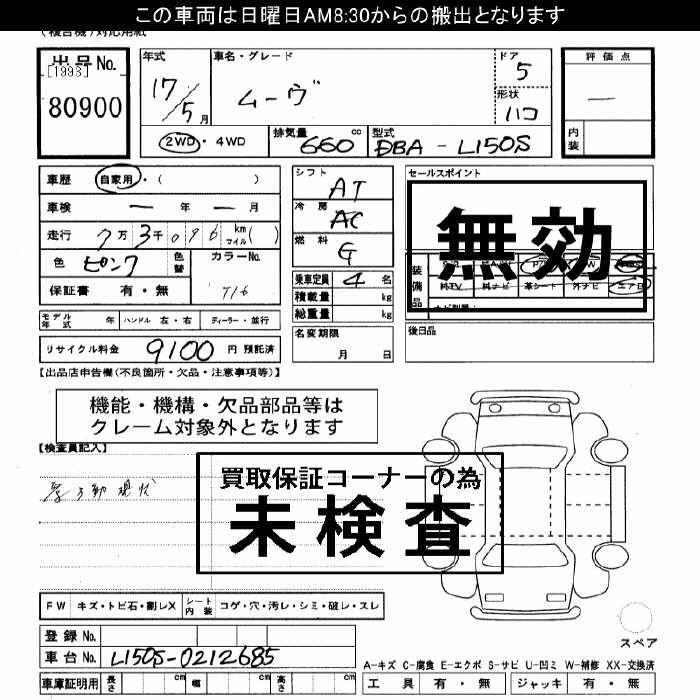 この車両は日曜日AM8:30からの搬出となります
(複合機)対応用紙
出品No.
[1993]
80900
年式
17/5月
車名・グレード
ムーヴ
ドア
5
形状
ハコ
評価点
―
内装
2WD・4WD
排気量 660 cc
型式 DBA - L150S
車歴 自家用・( )
車検 ― 年 ― 月
走行 7万3千096 km マイル( )
色 ピンク 色替
カラーNo. T16
保証書 有・無
シフト AT
冷房 AC
燃料 G
乗車定員 4 名
積載量 kg
総重量 kg
セールスポイント
無効
装備品
純TV 純ナビ 革シート 外ナビ エアB
モデル年式 年 ハンドル 左・右 ディーラー・並行
名変期限
月 日
後日品
リサイクル料金 9100 円 預託済
【出品店申告欄(不良箇所・欠品・注意事項等)】
機能・機構・欠品部品等は
クレーム対象外となります
【検査員記入】
買取保証コーナーの為
未検査
現状
FW キズ・トビ石・割レX
シート内装 コゲ・穴・汚レ・シミ・破レ・スレ
登録No.
車台No. L150S-0212685
スペア
A-キズ C-腐食 E-エクボ S-サビ U-凹ミ W-補修 XX-交換済
車庫証明用 長さ cm 幅 cm 高さ cm
工具 有・無 ジャッキ 有・無